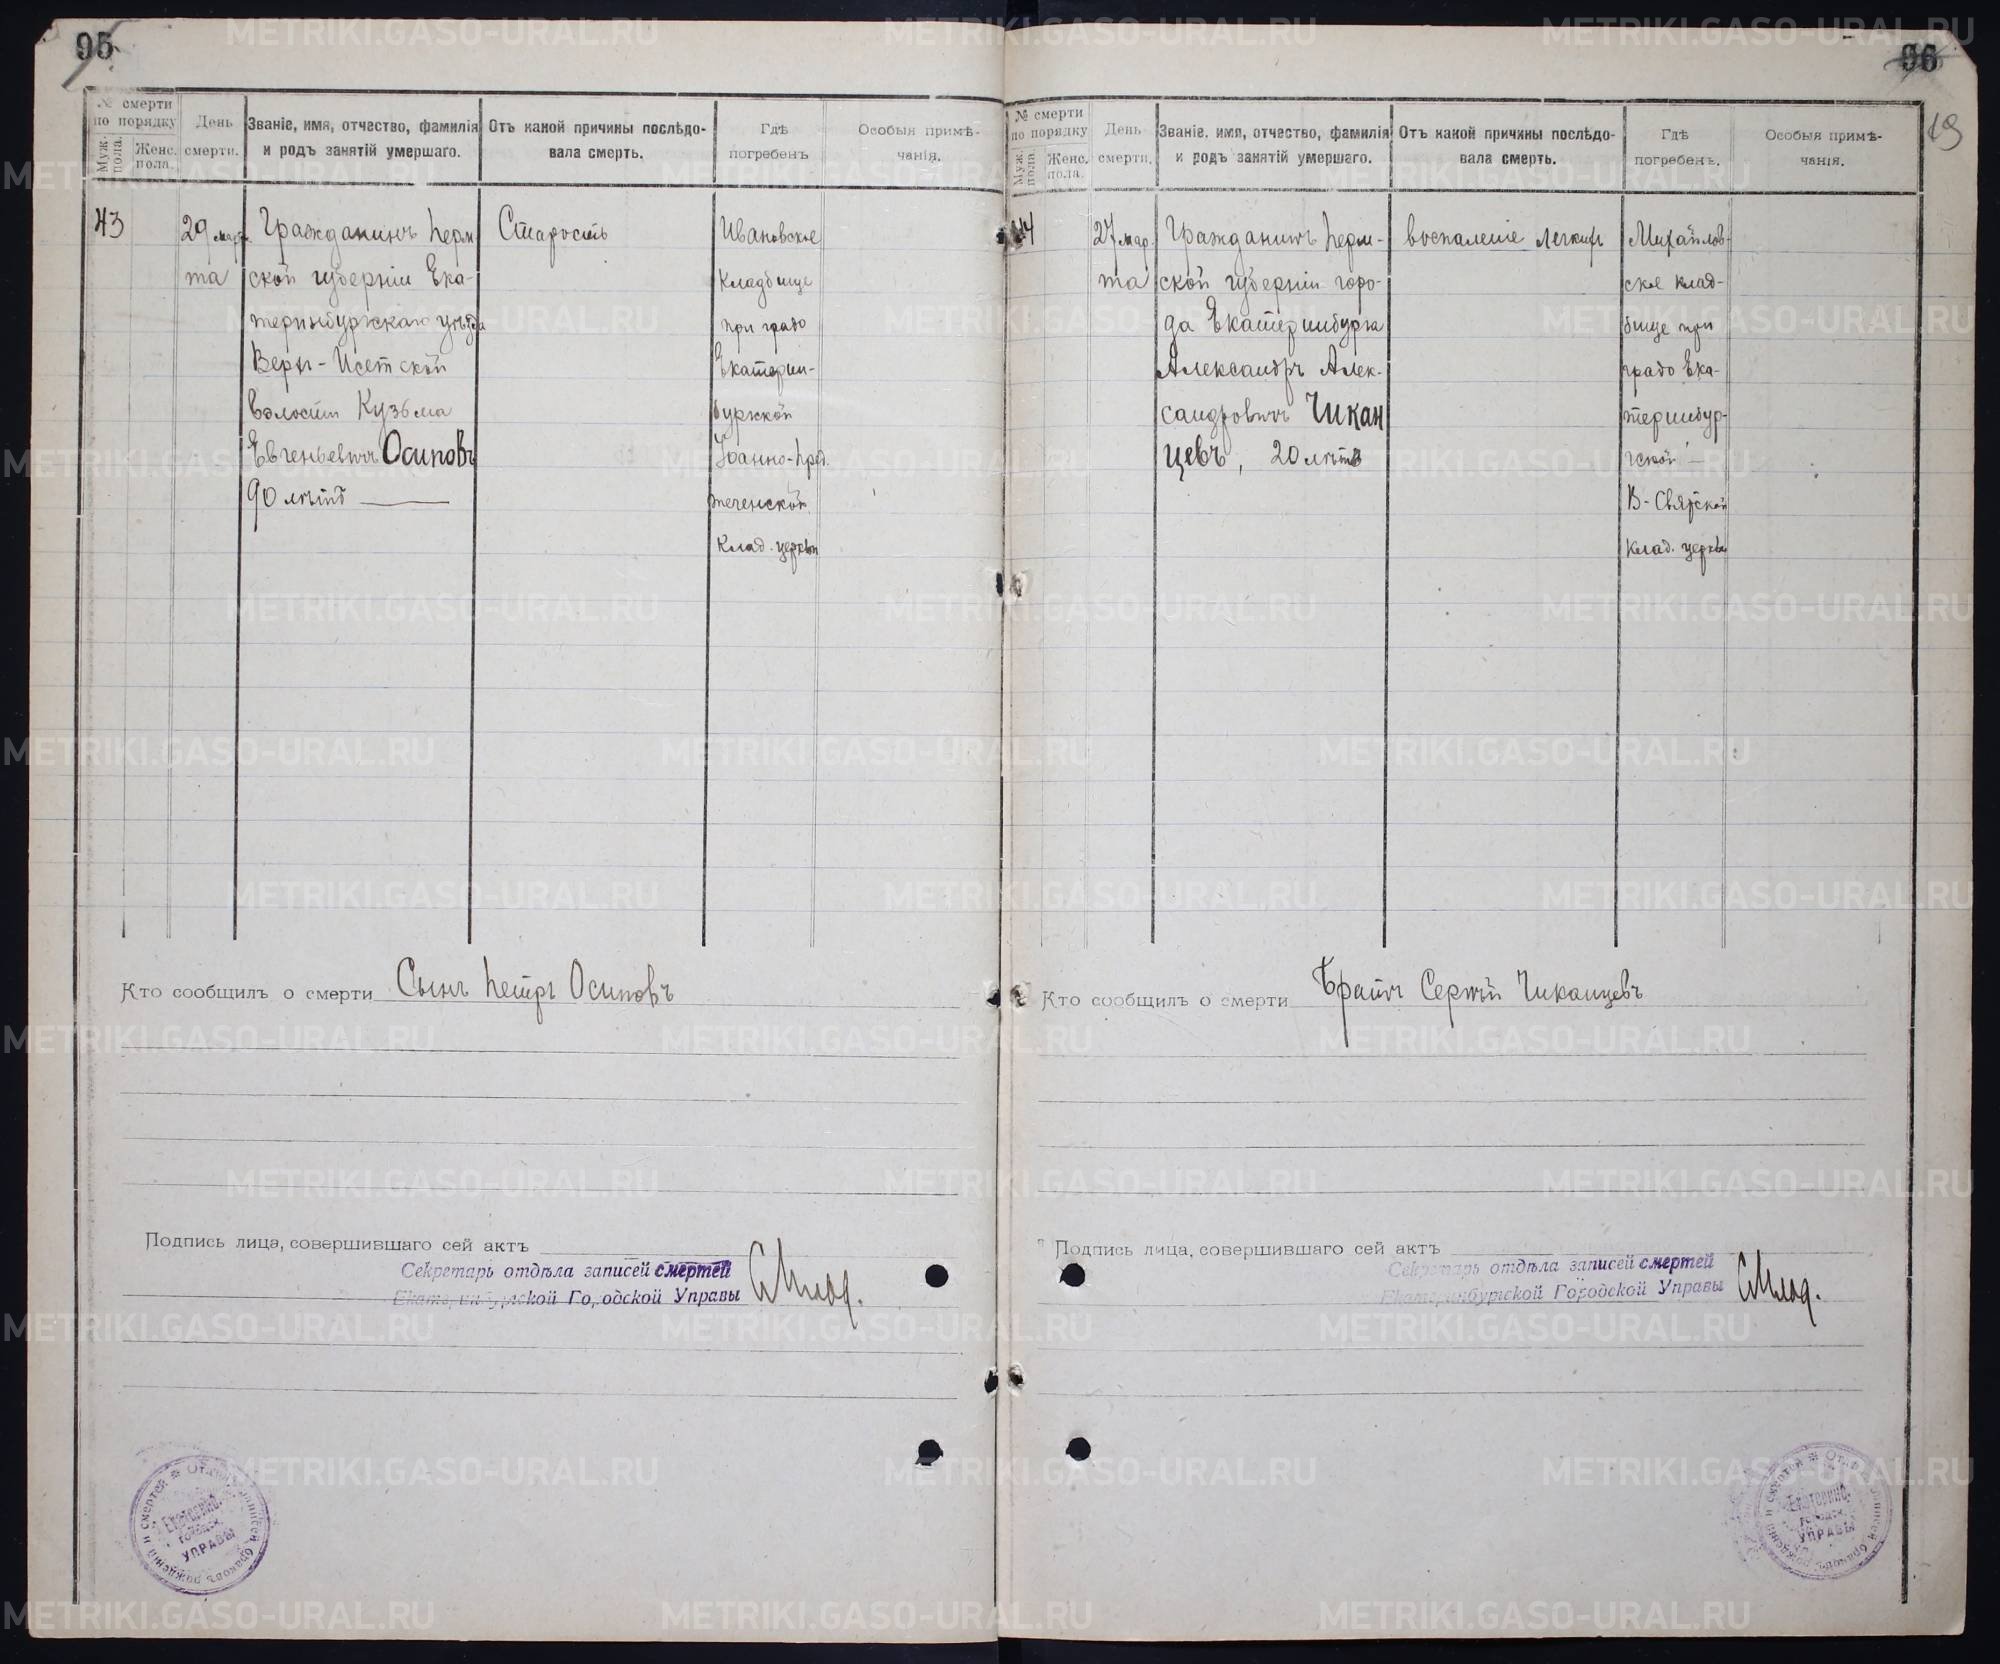 95
№ смерти
по порядку
Муж. пола.
Женс. пола.
День
смерти.
Званіе, имя, отчество, фамилія
и родъ занятій умершаго.
Отъ какой причины послѣдо-
вала смерть.
Гдѣ
погребенъ
Особыя примѣ-
чанія.
43
29 мар
та
Гражданинъ Перм
ской губерніи Ека-
теринбургскаго уѣзда
Верх-Исетской
волости Кузьма
Евгеньевичъ Осиповъ
90 лѣтъ
Старость
Ивановское
кладбище
при градо
Екатерин-
бургской
Іоанно-Пред
теченской
клад. церкви
Кто сообщилъ о смерти Сынъ Петръ Осиповъ
Подпись лица, совершившаго сей актъ
Секретарь отдѣла записей смертей
Екатеринбургской Городской Управы
Отдѣлъ записей браковъ, рожденій и смертей
Екатеринб.
городск.
УПРАВЫ
96
19
№ смерти
по порядку
Муж. пола.
Женс. пола.
День
смерти.
Званіе, имя, отчество, фамилія
и родъ занятій умершаго.
Отъ какой причины послѣдо-
вала смерть.
Гдѣ
погребенъ.
Особыя примѣ-
чанія.
44
27 мар.
та
Гражданинъ Перм-
ской губерніи горо-
да Екатеринбурга
Александръ Алек-
сандровичъ Чикан
цевъ, 20 лѣтъ
воспаленіе легкихъ
Михайлов-
ское клад-
бище при
градо Ека-
теринбур-
гской
В-Святской
клад. церкви
Кто сообщилъ о смерти Братъ Сергѣй Чиканцевъ
Подпись лица, совершившаго сей актъ
Секретарь отдѣла записей смертей
Екатеринбургской Городской Управы
Отдѣлъ записей браковъ, рожденій и смертей
Екатеринб.
городск.
УПРАВЫ
METRIKI.GASO-URAL.RU